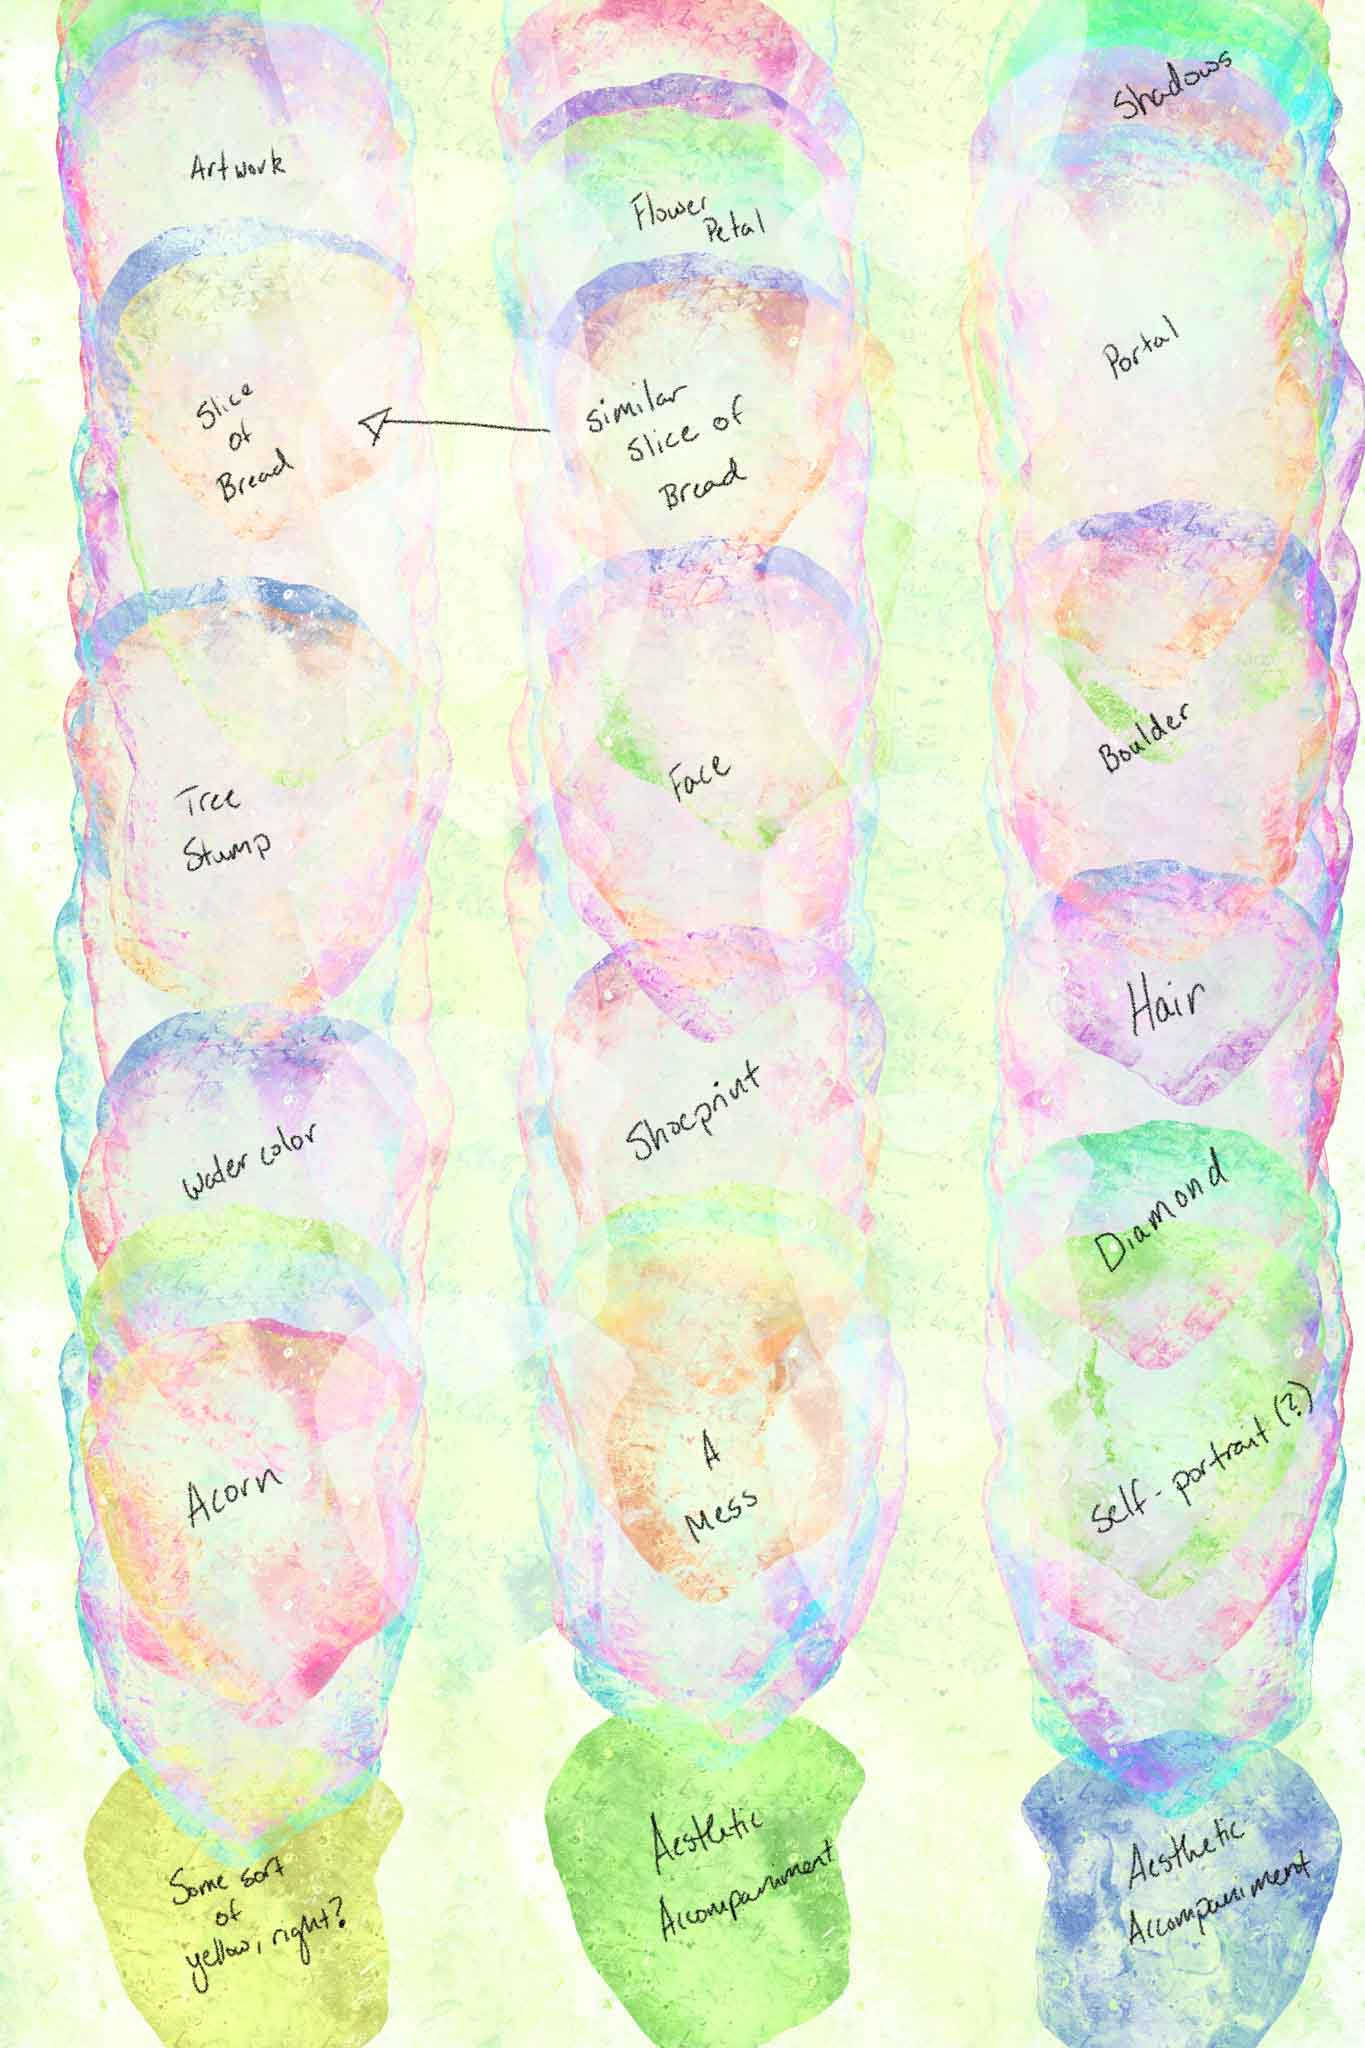 Artwork
Slice
of
Bread
Tree
Stump
Water color
Acorn
Some sort
of
yellow, right?
Flower
Petal
Similar
Slice of
Bread
Face
Shoeprint
A
Mess
Aesthetic
Accompaniment
Shadows
Portal
Boulder
Hair
Diamond
Self-portrait (?)
Aesthetic
Accompaniment